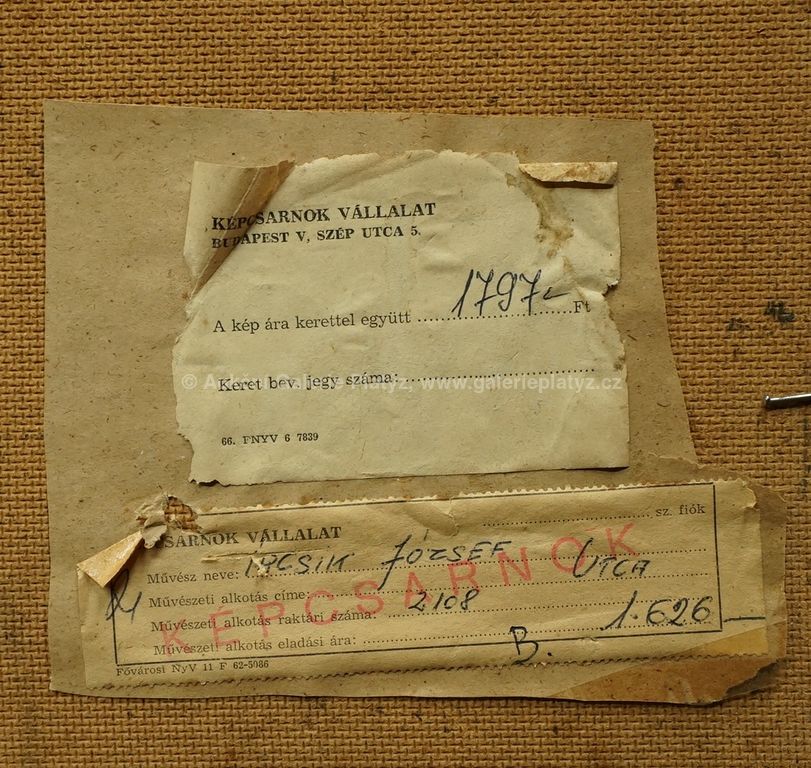 KÉPCSARNOK VÁLLALAT
BUDAPEST V, SZÉP UTCA 5.
A kép ára kerettel együtt 1797 Ft
Keret bev. jegy száma:
www.galerieplatyz.cz
66. FNYV 6 7839
sz. fiók
CSARNOK VÁLLALAT
Művész neve: IRCSIK JÓZSEF
Művészeti alkotás címe: UTCA
Művészeti alkotás raktári száma: 2108
Művészeti alkotás eladási ára: 1.626
B.
KÉPCSARNOK
Fővárosi NyV 11 F 62-5086